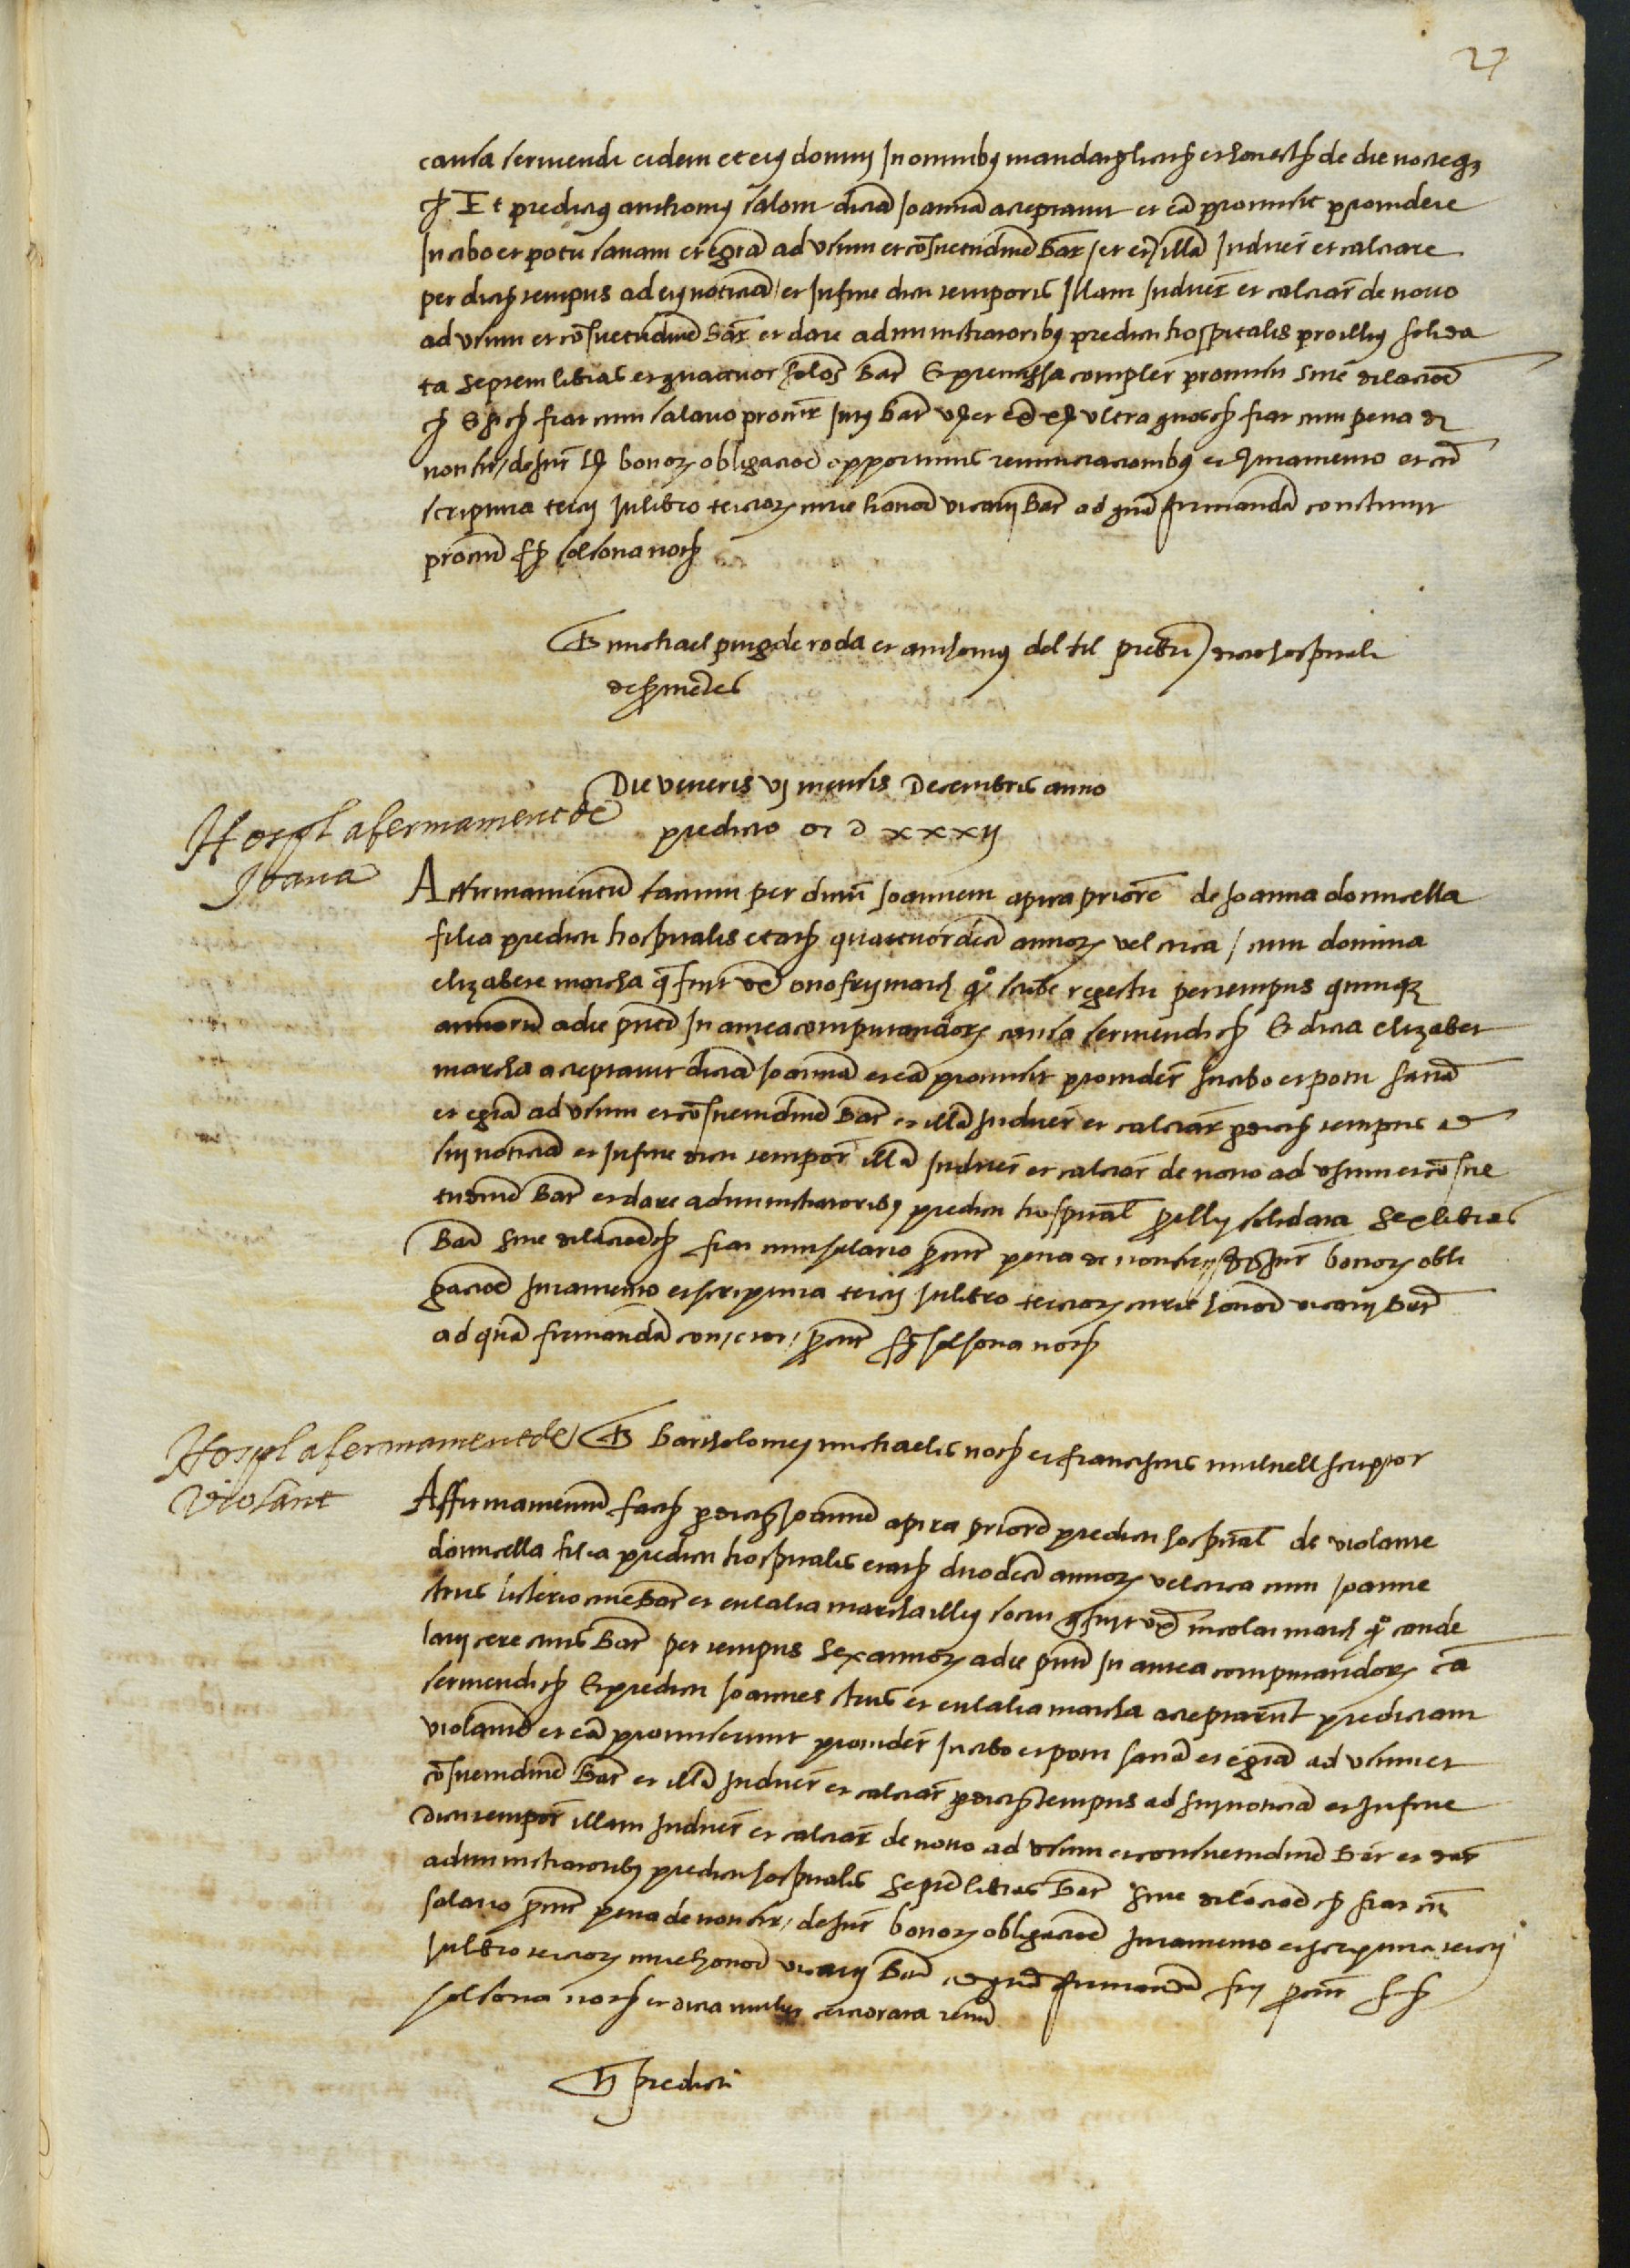 27
causa serviendi eidem et eius domui in omnibus mandatis licitis et honestis de die nocteque
etc Et predictus anthonius salom dictam Joannam acceptavit et eam promisit providere
in cibo et potu sanam et egram ad usum et consuetudinem Bar et etiam illam induere et calciare
per dictum tempus ad eius noticiam et in fine dicti temporis illam induere et calciare de novo
ad usum et consuetudinem Bar et dare administratoribus predicti hospitalis pro illius solida
ta septem libras et quattuor solidos Bar Et premissa complere promisit sine dilacione
fiat cum salario procuratoris intus Bar et extra ultra quos etc fiat cum pena de
non firmando jus bonorum obligacione opportunis renunciacionibus et juramento et cum
scriptura tercii in libro terciorum curie honorabilis vicarii Bar ad quam firmandam constituit
procuratorem solsona notarium
Testes michael puig de roda et anthonius del til presbiteri in dicto hospitali
degentes
Die veneris vj mensis Decembris anno
predicto M D xxxij
Hospl afermament de
Joana
Affirmamentum factum per dictum Joannem apira priorem de Joanna domicella
filia predicti hospitalis etatis quattuordecim annorum vel circa cum domina
elizabete marcha que fuit uxor onofrij march quondam scribe regestri per tempus quinque
annorum a die presenti in antea computandorum causa serviendi etc Et dicta elizabet
marcha acceptavit dictam Joannam et eam promisit providere in cibo et potu sanam
et egram ad usum et consuetudinem Bar et illam induere et calciare per dictum tempus ad
sui noticiam et in fine dicti temporis illam induere et calciare de novo ad usum et consue
tudinem Bar et dare administratoribus predicti hospitalis pro illius solidata sex libras
Bar sine dilacione etc fiat cum salario procuratoris pena de non firmando jus bonorum obli
gacione juramento et scriptura tercii in libro terciorum curie honorabilis vicarii Bar
ad quam firmandam constituit procuratorem solsona notarium
Hospl afermament de
Violant
Testes Bartholomeus michaelis notarius et franciscus mulnell scriptor
Affirmamentum factum per dictum Joannem apira priorem predicti hospitalis de violante
domicella filia predicti hospitalis etatis duodecim annorum vel circa cum Joanne
cive Bar et eulalia marcha illius socru que fuit uxor nicolai march quondam cande
larii cere civis Bar per tempus sex annorum a die presenti in antea computandorum causa
serviendi etc Et predicti Joannes et eulalia marcha acceptarunt predictam
violantem et eam promiserunt providere in cibo et potu sanam et egram ad usum et
consuetudinem Bar et illam induere et calciare per dictum tempus ad sui noticiam et in fine
dicti temporis illam induere et calciare de novo ad usum et consuetudinem Bar et dare
administratoribus predicti hospitalis septem libras Bar sine dilacione etc fiat cum
salario procuratoris pena de non firmando jus bonorum obligacione juramento et scriptura tercii
in libro terciorum curie honorabilis vicarii Bar ad quam firmandam procuratorem
solsona notarium et dicta mulier cerciorata
Testes predicti